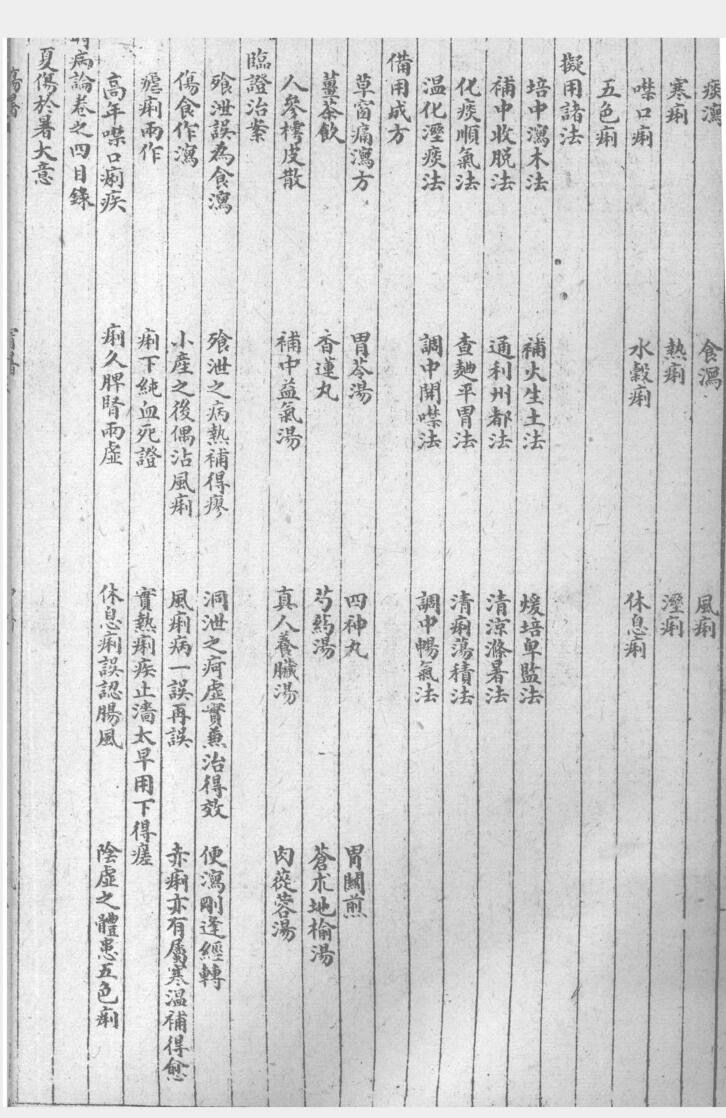 痰瀉 食瀉 風痢
寒痢 熱痢 溼痢
噤口痢 水穀痢 休息痢
五色痢
擬用諸法
培中瀉木法 補火生土法 煖培卑監法
補中收脫法 通利州都法 清涼滌暑法
化痰順氣法 查麯平胃法 清痢蕩積法
溫化溼痰法 調中開噤法 調中暢氣法
備用成方
草窗痛瀉方 胃苓湯 四神丸 胃關煎
薑茶飲 香連丸 芍藥湯 蒼朮地榆湯
人參樗皮散 補中益氣湯 真人養臟湯 肉蓯蓉湯
臨證治案
飱泄誤為食瀉 飱泄之病熱補得瘳 洞泄之疴虛實兼治得效 便瀉剛逢經轉
傷食作瀉 小產之後偶沾風痢 風痢病一誤再誤 赤痢亦有屬寒溫補得愈
瘧痢兩作 痢下純血死證 實熱痢疾止濇太早用下得瘥
高年噤口痢疾 痢久脾腎兩虛 休息痢誤認腸風 陰虛之體患五色痢
病論卷之四目錄
夏傷於暑大意
傷暑